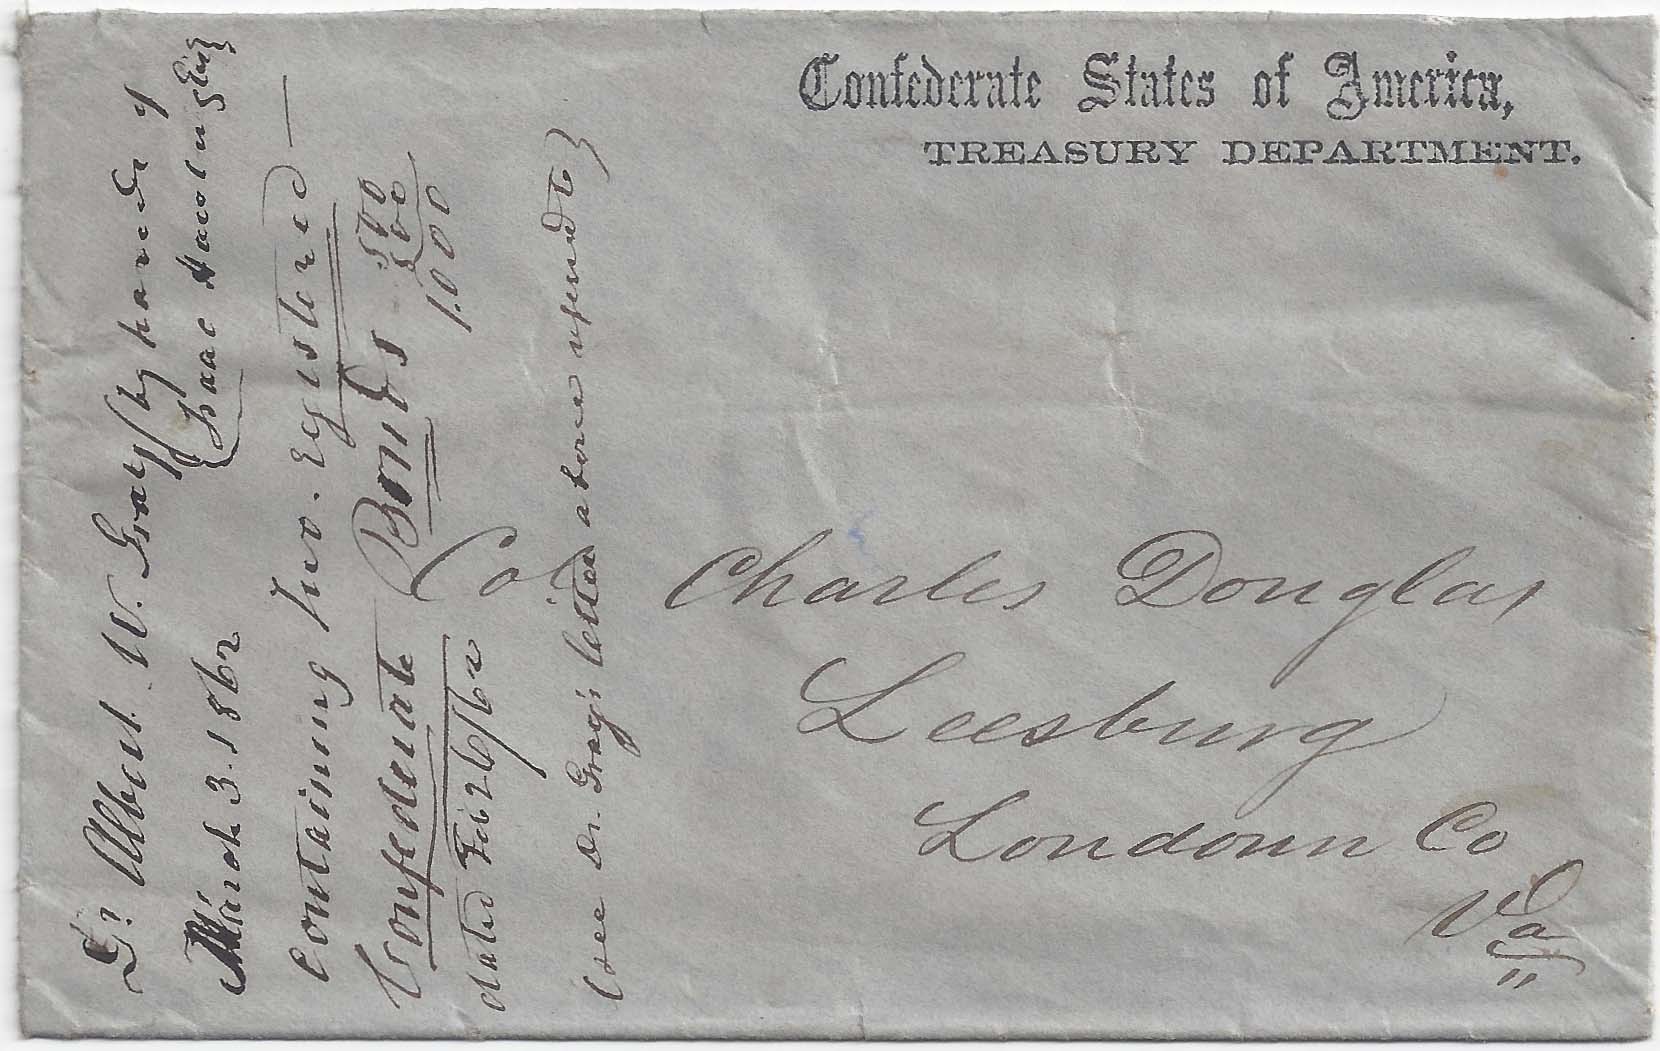 Confederate States of America,
TREASURY DEPARTMENT.
Col Charles Douglas
Leesburg
Loudoun Co
Va
Dr. Albert W. Gray by hands of
March 3. 1862 Isaac
containing two. Registered —
Confederate Bonds 500
500
dated Feb 26/62 1.000
(see Dr. Gray's letter above